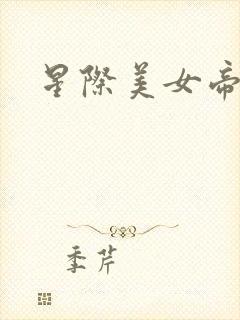 星際美女帝
季芹